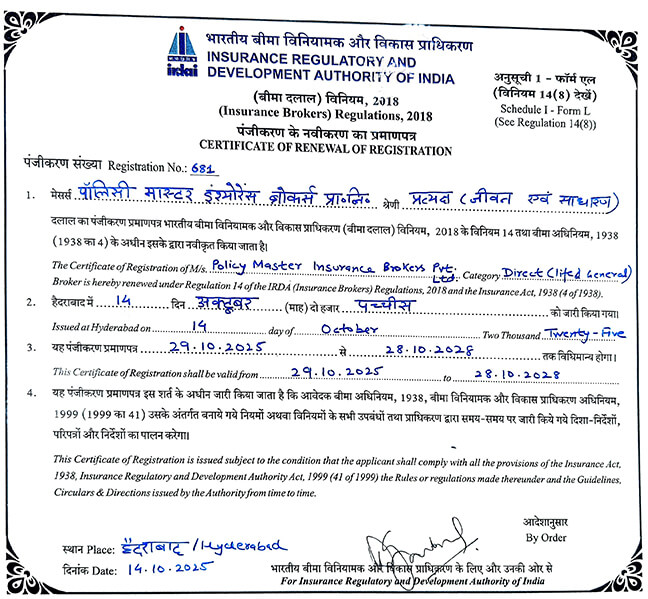 भारतीय बीमा विनियामक और विकास प्राधिकरण
INSURANCE REGULATORY AND
DEVELOPMENT AUTHORITY OF INDIA
irdai
अनुसूची 1 - फॉर्म एल
(विनियम 14(8) देखें)
Schedule I - Form L
(See Regulation 14(8))
(बीमा दलाल) विनियम, 2018
(Insurance Brokers) Regulations, 2018
पंजीकरण के नवीकरण का प्रमाणपत्र
CERTIFICATE OF RENEWAL OF REGISTRATION
पंजीकरण संख्या Registration No.: 681
1. मेसर्स पॉलिसी मास्टर इंश्योरेंस ब्रोकर्स प्रा॰लि॰ श्रेणी प्रत्यक्ष (जीवन एवं साधारण)
दलाल का पंजीकरण प्रमाणपत्र भारतीय बीमा विनियामक और विकास प्राधिकरण (बीमा दलाल) विनियम, 2018 के विनियम 14 तथा बीमा अधिनियम, 1938
(1938 का 4) के अधीन इसके द्वारा नवीकृत किया जाता है।
The Certificate of Registration of M/s. Policy Master Insurance Brokers Pvt. Ltd. Category Direct (Life & General)
Broker is hereby renewed under Regulation 14 of the IRDA (Insurance Brokers) Regulations, 2018 and the Insurance Act, 1938 (4 of 1938).
2. हैदराबाद में 14 दिन अक्टूबर (माह) दो हजार पच्चीस को जारी किया गया।
Issued at Hyderabad on 14 day of October Two Thousand Twenty-Five
3. यह पंजीकरण प्रमाणपत्र 29.10.2025 से 28.10.2028 तक विधिमान्य होगा।
This Certificate of Registration shall be valid from 29.10.2025 to 28.10.2028
4. यह पंजीकरण प्रमाणपत्र इस शर्त के अधीन जारी किया जाता है कि आवेदक बीमा अधिनियम, 1938, बीमा विनियामक और विकास प्राधिकरण अधिनियम,
1999 (1999 का 41) उसके अंतर्गत बनाये गये नियमों अथवा विनियमों के सभी उपबंधों तथा प्राधिकरण द्वारा समय-समय पर जारी किये गये दिशा-निर्देशों,
परिपत्रों और निर्देशों का पालन करेगा।
This Certificate of Registration is issued subject to the condition that the applicant shall comply with all the provisions of the Insurance Act,
1938, Insurance Regulatory and Development Authority Act, 1999 (41 of 1999) the Rules or regulations made thereunder and the Guidelines,
Circulars & Directions issued by the Authority from time to time.
आदेशानुसार
By Order
स्थान Place: हैदराबाद/Hyderabad
दिनांक Date: 14.10.2025
भारतीय बीमा विनियामक और विकास प्राधिकरण के लिए और उनकी ओर से
For Insurance Regulatory and Development Authority of India